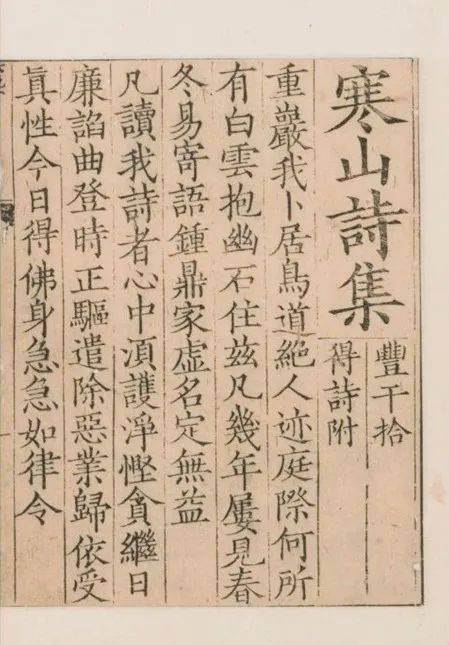 寒山詩集
豐干拾
得詩附
重巖我卜居鳥道絕人迹庭際何所
有白雲抱幽石住茲凡幾年屢見春
冬易寄語鍾鼎家虛名定無益
凡讀我詩者心中湏護淨慳貪繼日
廉諂曲登時正驅遣除惡業歸依受
真性今日得佛身急急如律令